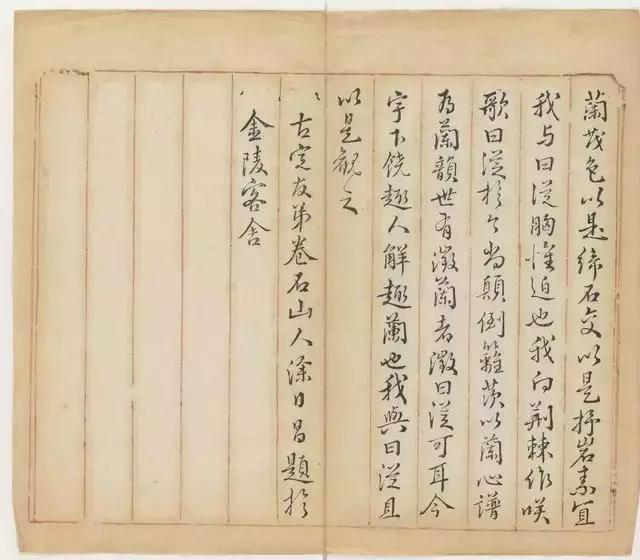 蘭茂色以是締石交以是抒岩素宜
我与曰從胸懷迫也我向荆棘作咲
歌曰從於今当顛倒籬茨以蘭心譜
為蘭韻世有徵蘭者徵曰從可耳今
宇下饒趣人解趣蘭也我與曰從且
以是観之
古完友弟卷石山人涂日昌題於
金陵客舍